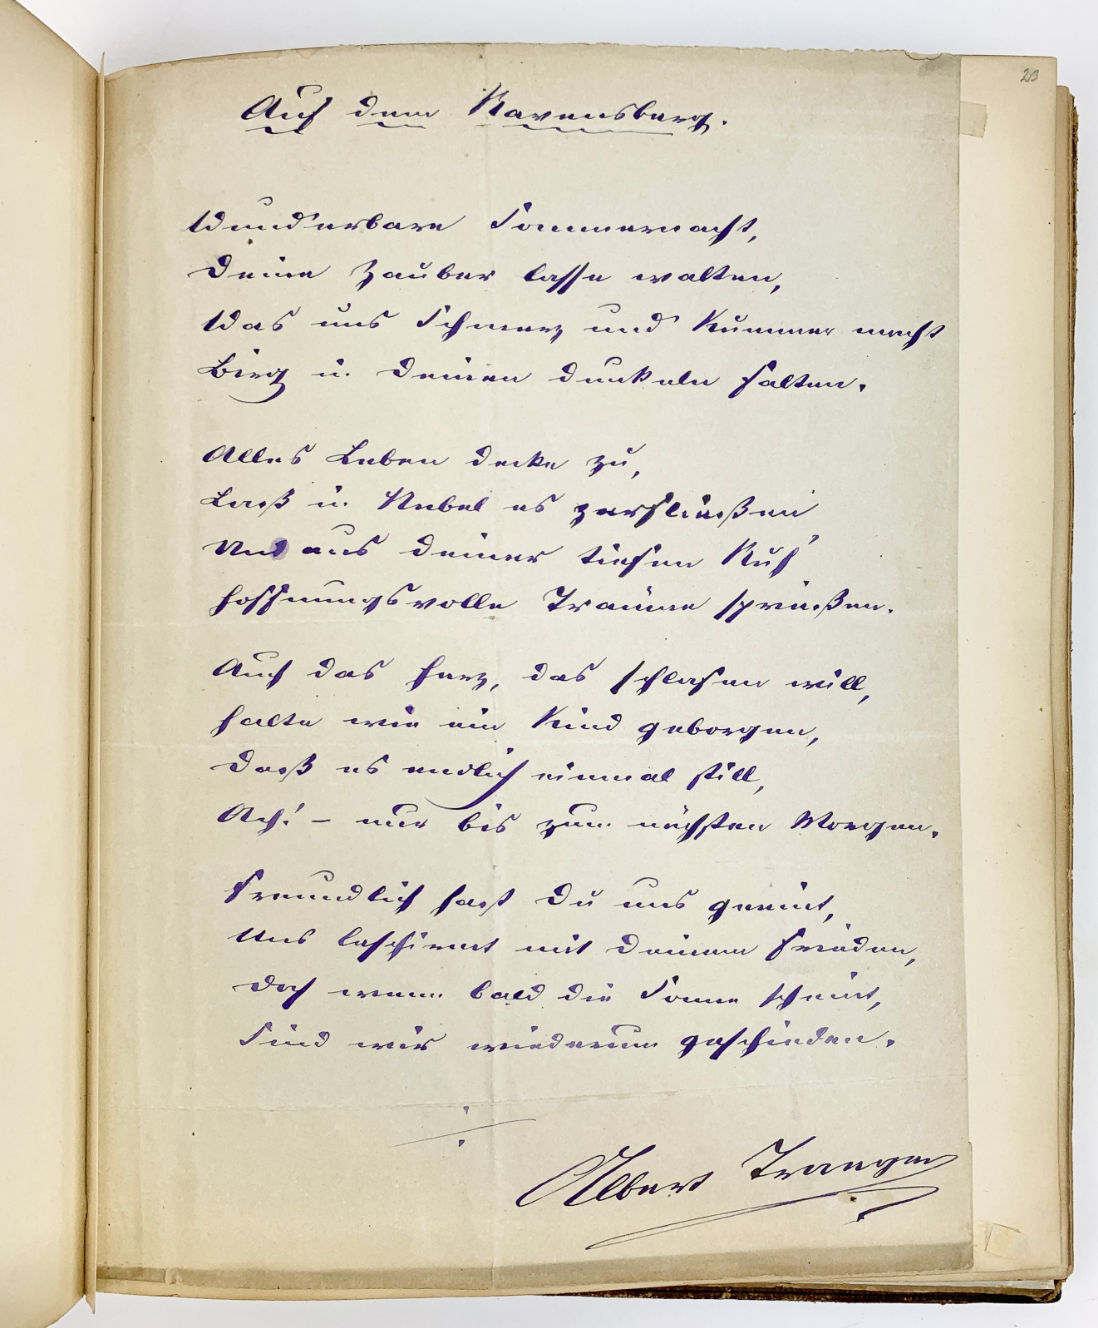 23
Auf dem Ravensberg.
Wunderbare Sommernacht,
Deine Zauber lasse walten,
Was uns Schmerz und Kummer macht
Birg in Deinen dunkeln Falten.
Alles Leben decke zu,
Laß in Nebel es zerfließen
Und aus Deiner tiefen Ruh'
Hoffnungsvolle Träume sprießen.
Auch das Herz, das schlafen will,
Halte wie ein Kind geborgen,
Daß es endlich einmal still,
Ach! – nur bis zum nächsten Morgen.
Freundlich hast Du uns geeint,
Uns beschirmt mit Deinem Frieden,
Doch wenn bald die Sonne scheint,
Sind wir wiederum geschieden.
Albert Traeger